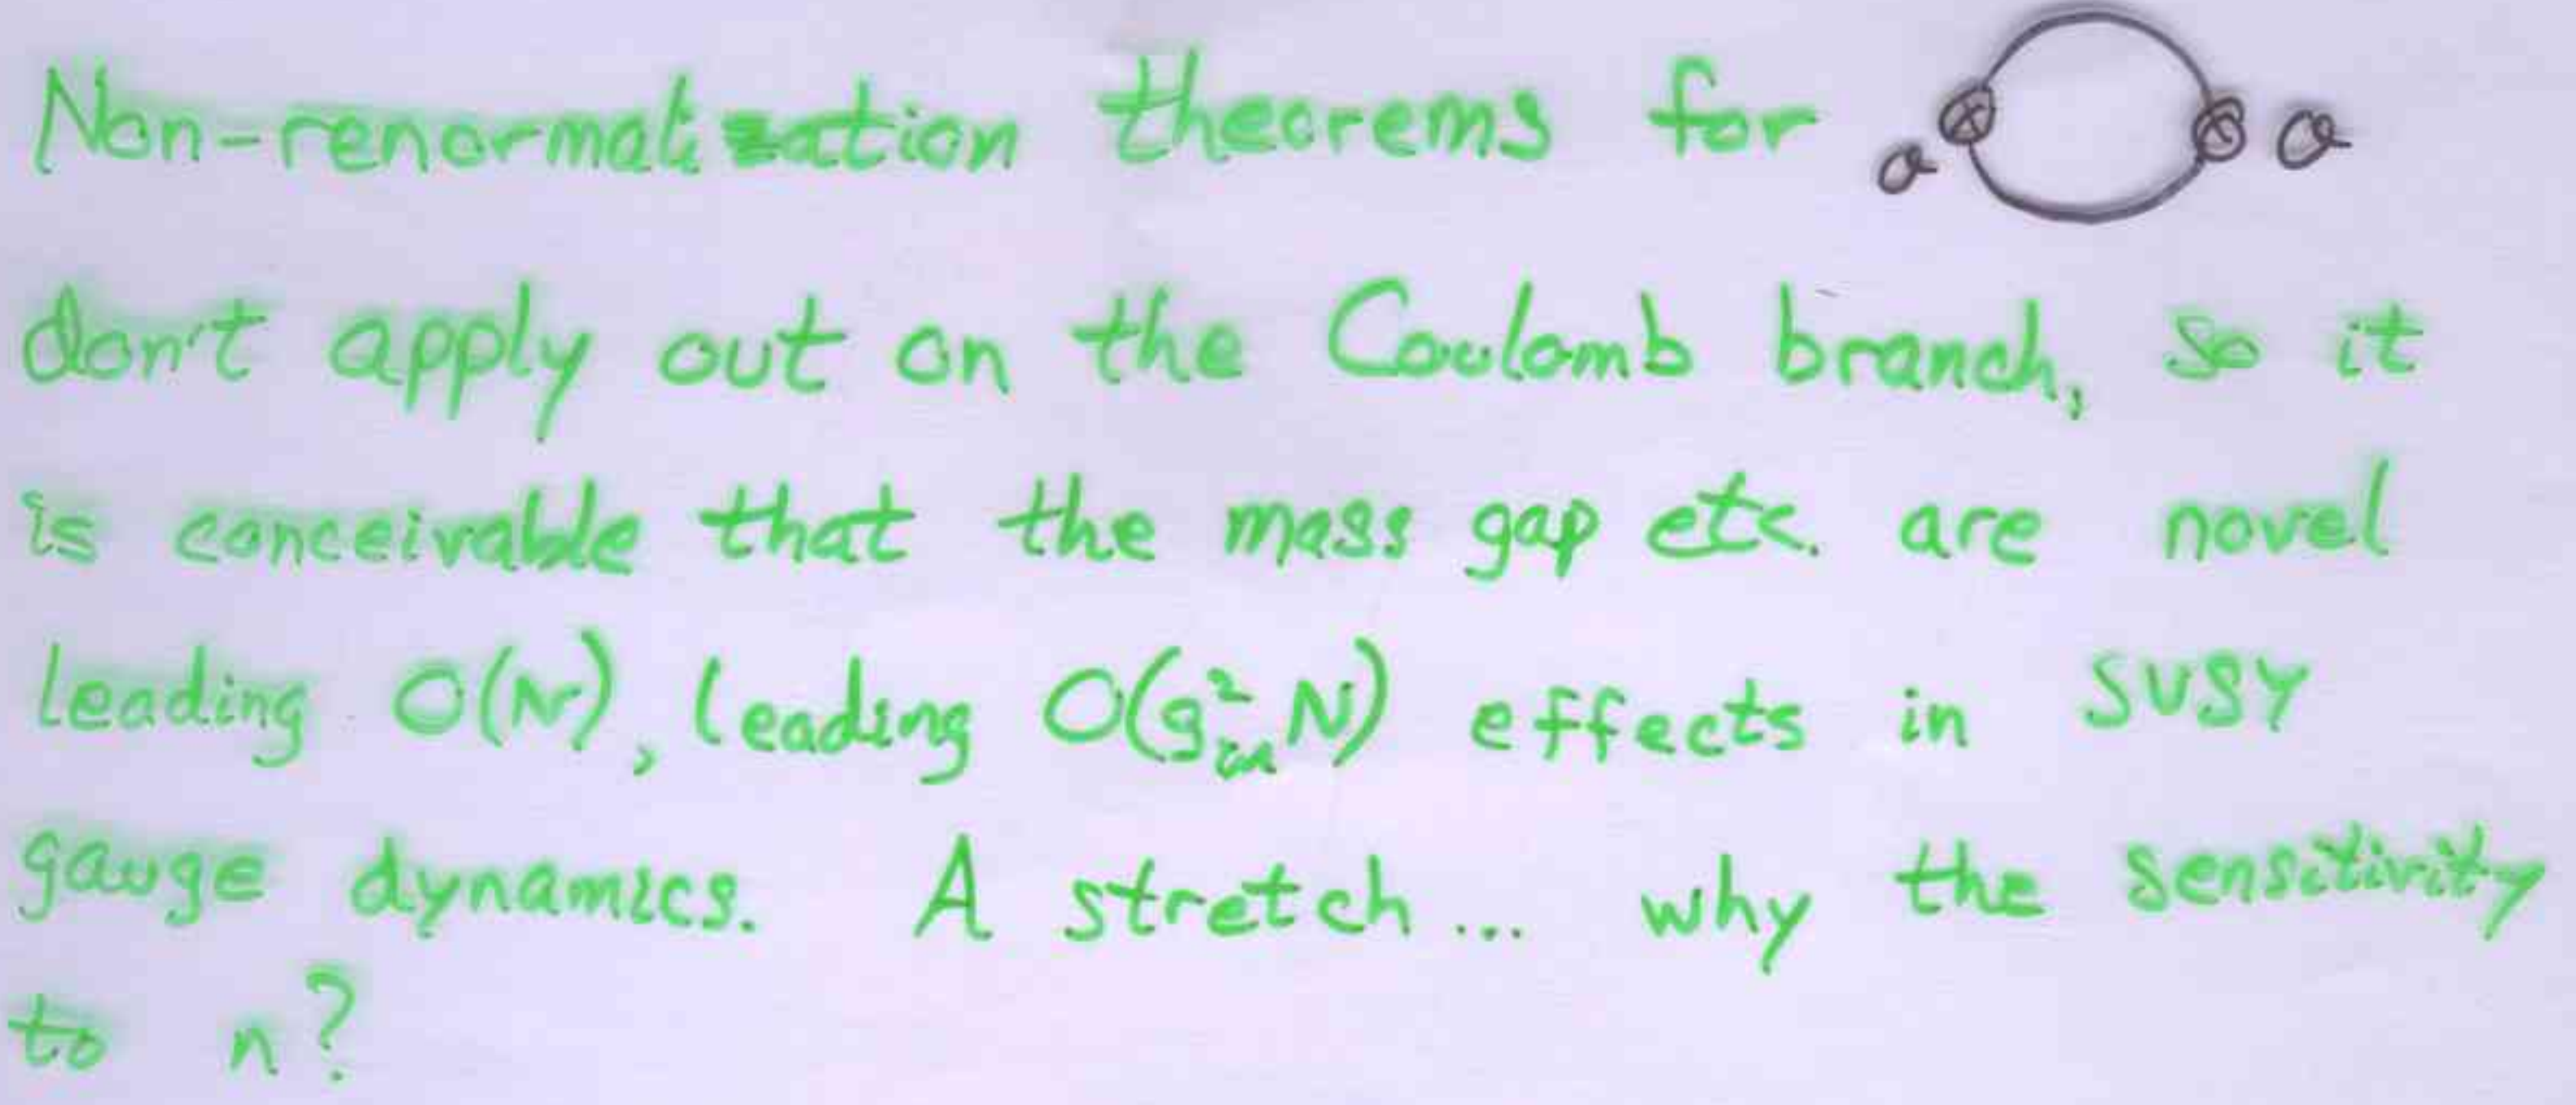 Non-renormalization theorems for O O
don't apply out on the Coulomb branch, so it
is conceivable that the mass gap etc. are novel
leading O(N), leading O(g²YM N) effects in SUSY
gauge dynamics. A stretch... why the sensitivity
to n?